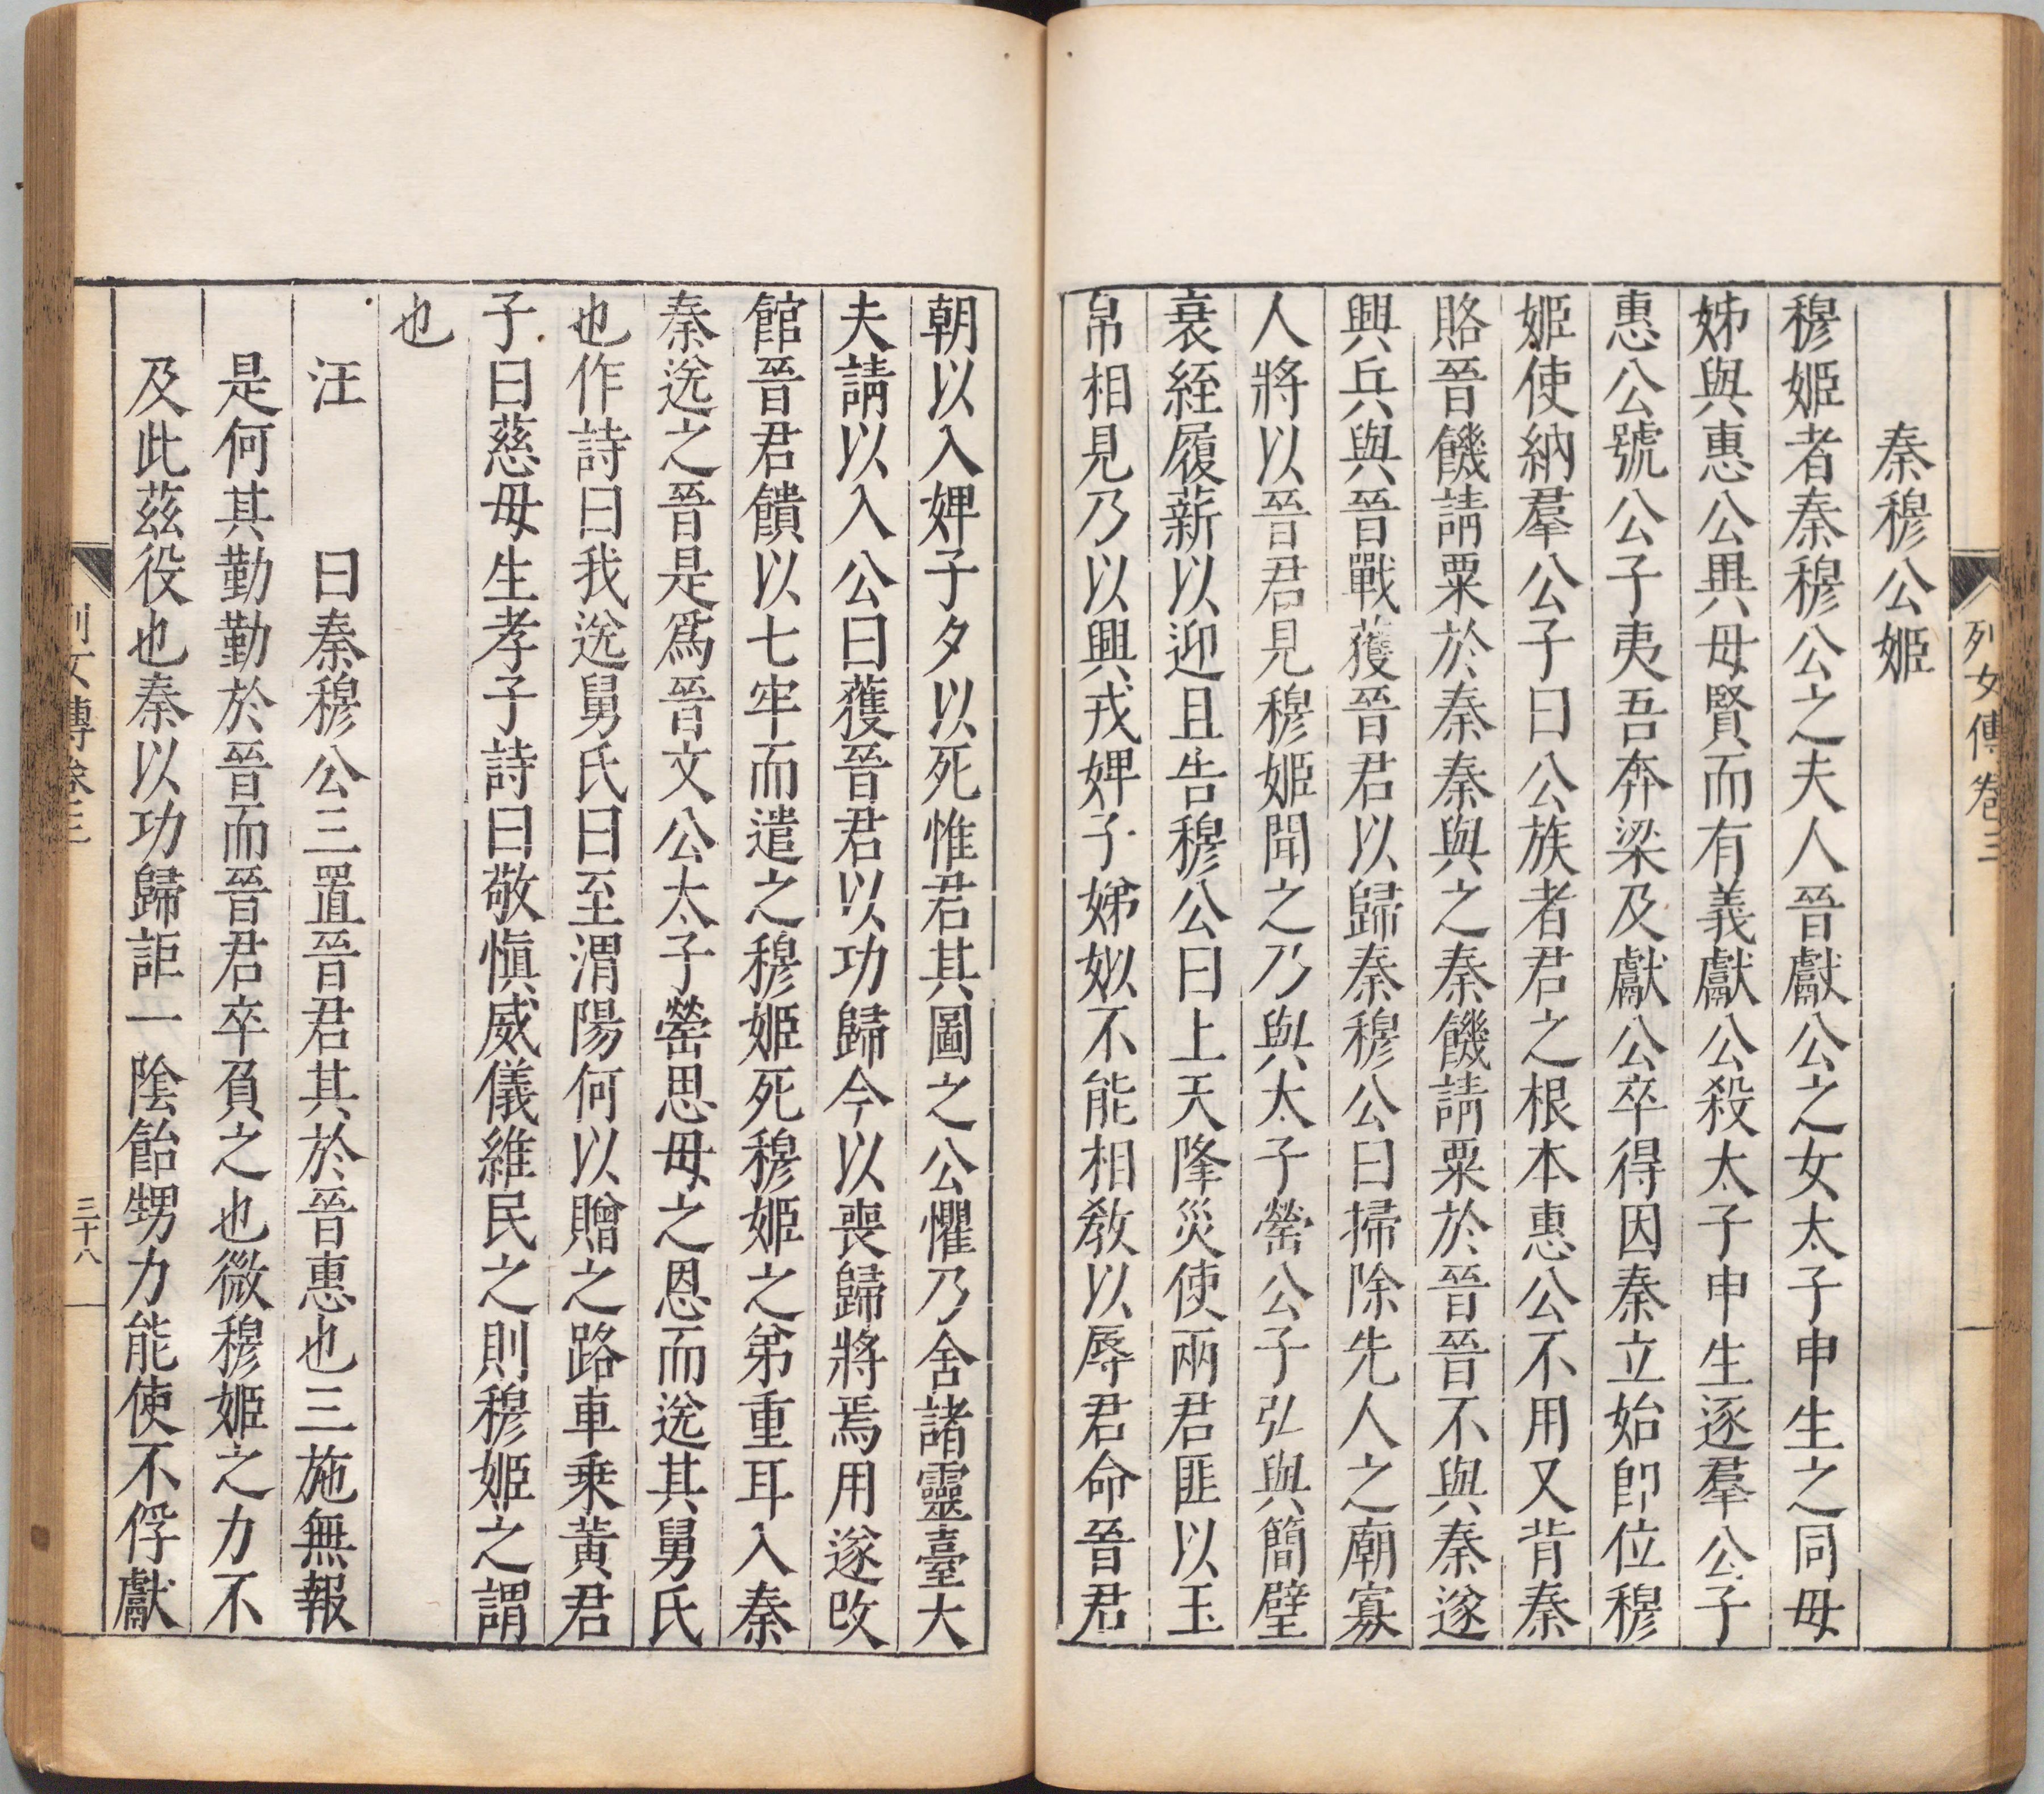 列女傳卷三
秦穆公姬
穆姬者秦穆公之夫人晉獻公之女太子申生之同母
姊與惠公異母賢而有義獻公殺太子申生逐羣公子
惠公號公子夷吾奔梁及獻公卒得因秦立始卽位穆
姬使納羣公子曰公族者君之根本惠公不用又背秦
賂晉饑請粟於秦秦與之秦饑請粟於晉晉不與秦遂
興兵與晉戰獲晉君以歸秦穆公曰掃除先人之廟寡
人將以晉君見穆姬聞之乃與太子罃公子弘與簡璧
衰絰履薪以迎且告穆公曰上天降災使兩君匪以玉
帛相見乃以興戎婢子娣姒不能相教以辱君命晉君
朝以入婢子夕以死惟君其圖之公懼乃舍諸靈臺大
夫請以入公曰獲晉君以功歸今以喪歸將焉用遂改
館晉君饋以七牢而遣之穆姬死穆姬之弟重耳入秦
秦送之晉是爲晉文公太子罃思母之恩而送其舅氏
也作詩曰我送舅氏曰至渭陽何以贈之路車乗黃君
子曰慈母生孝子詩曰敬慎威儀維民之則穆姬之謂
也
汪 曰秦穆公三置晉君其於晉惠也三施無報
是何其勤勤於晉而晉君卒負之也微穆姬之力不
及此茲役也秦以功歸詎一陰飴甥力能使不俘獻
列女傳卷三
三十八